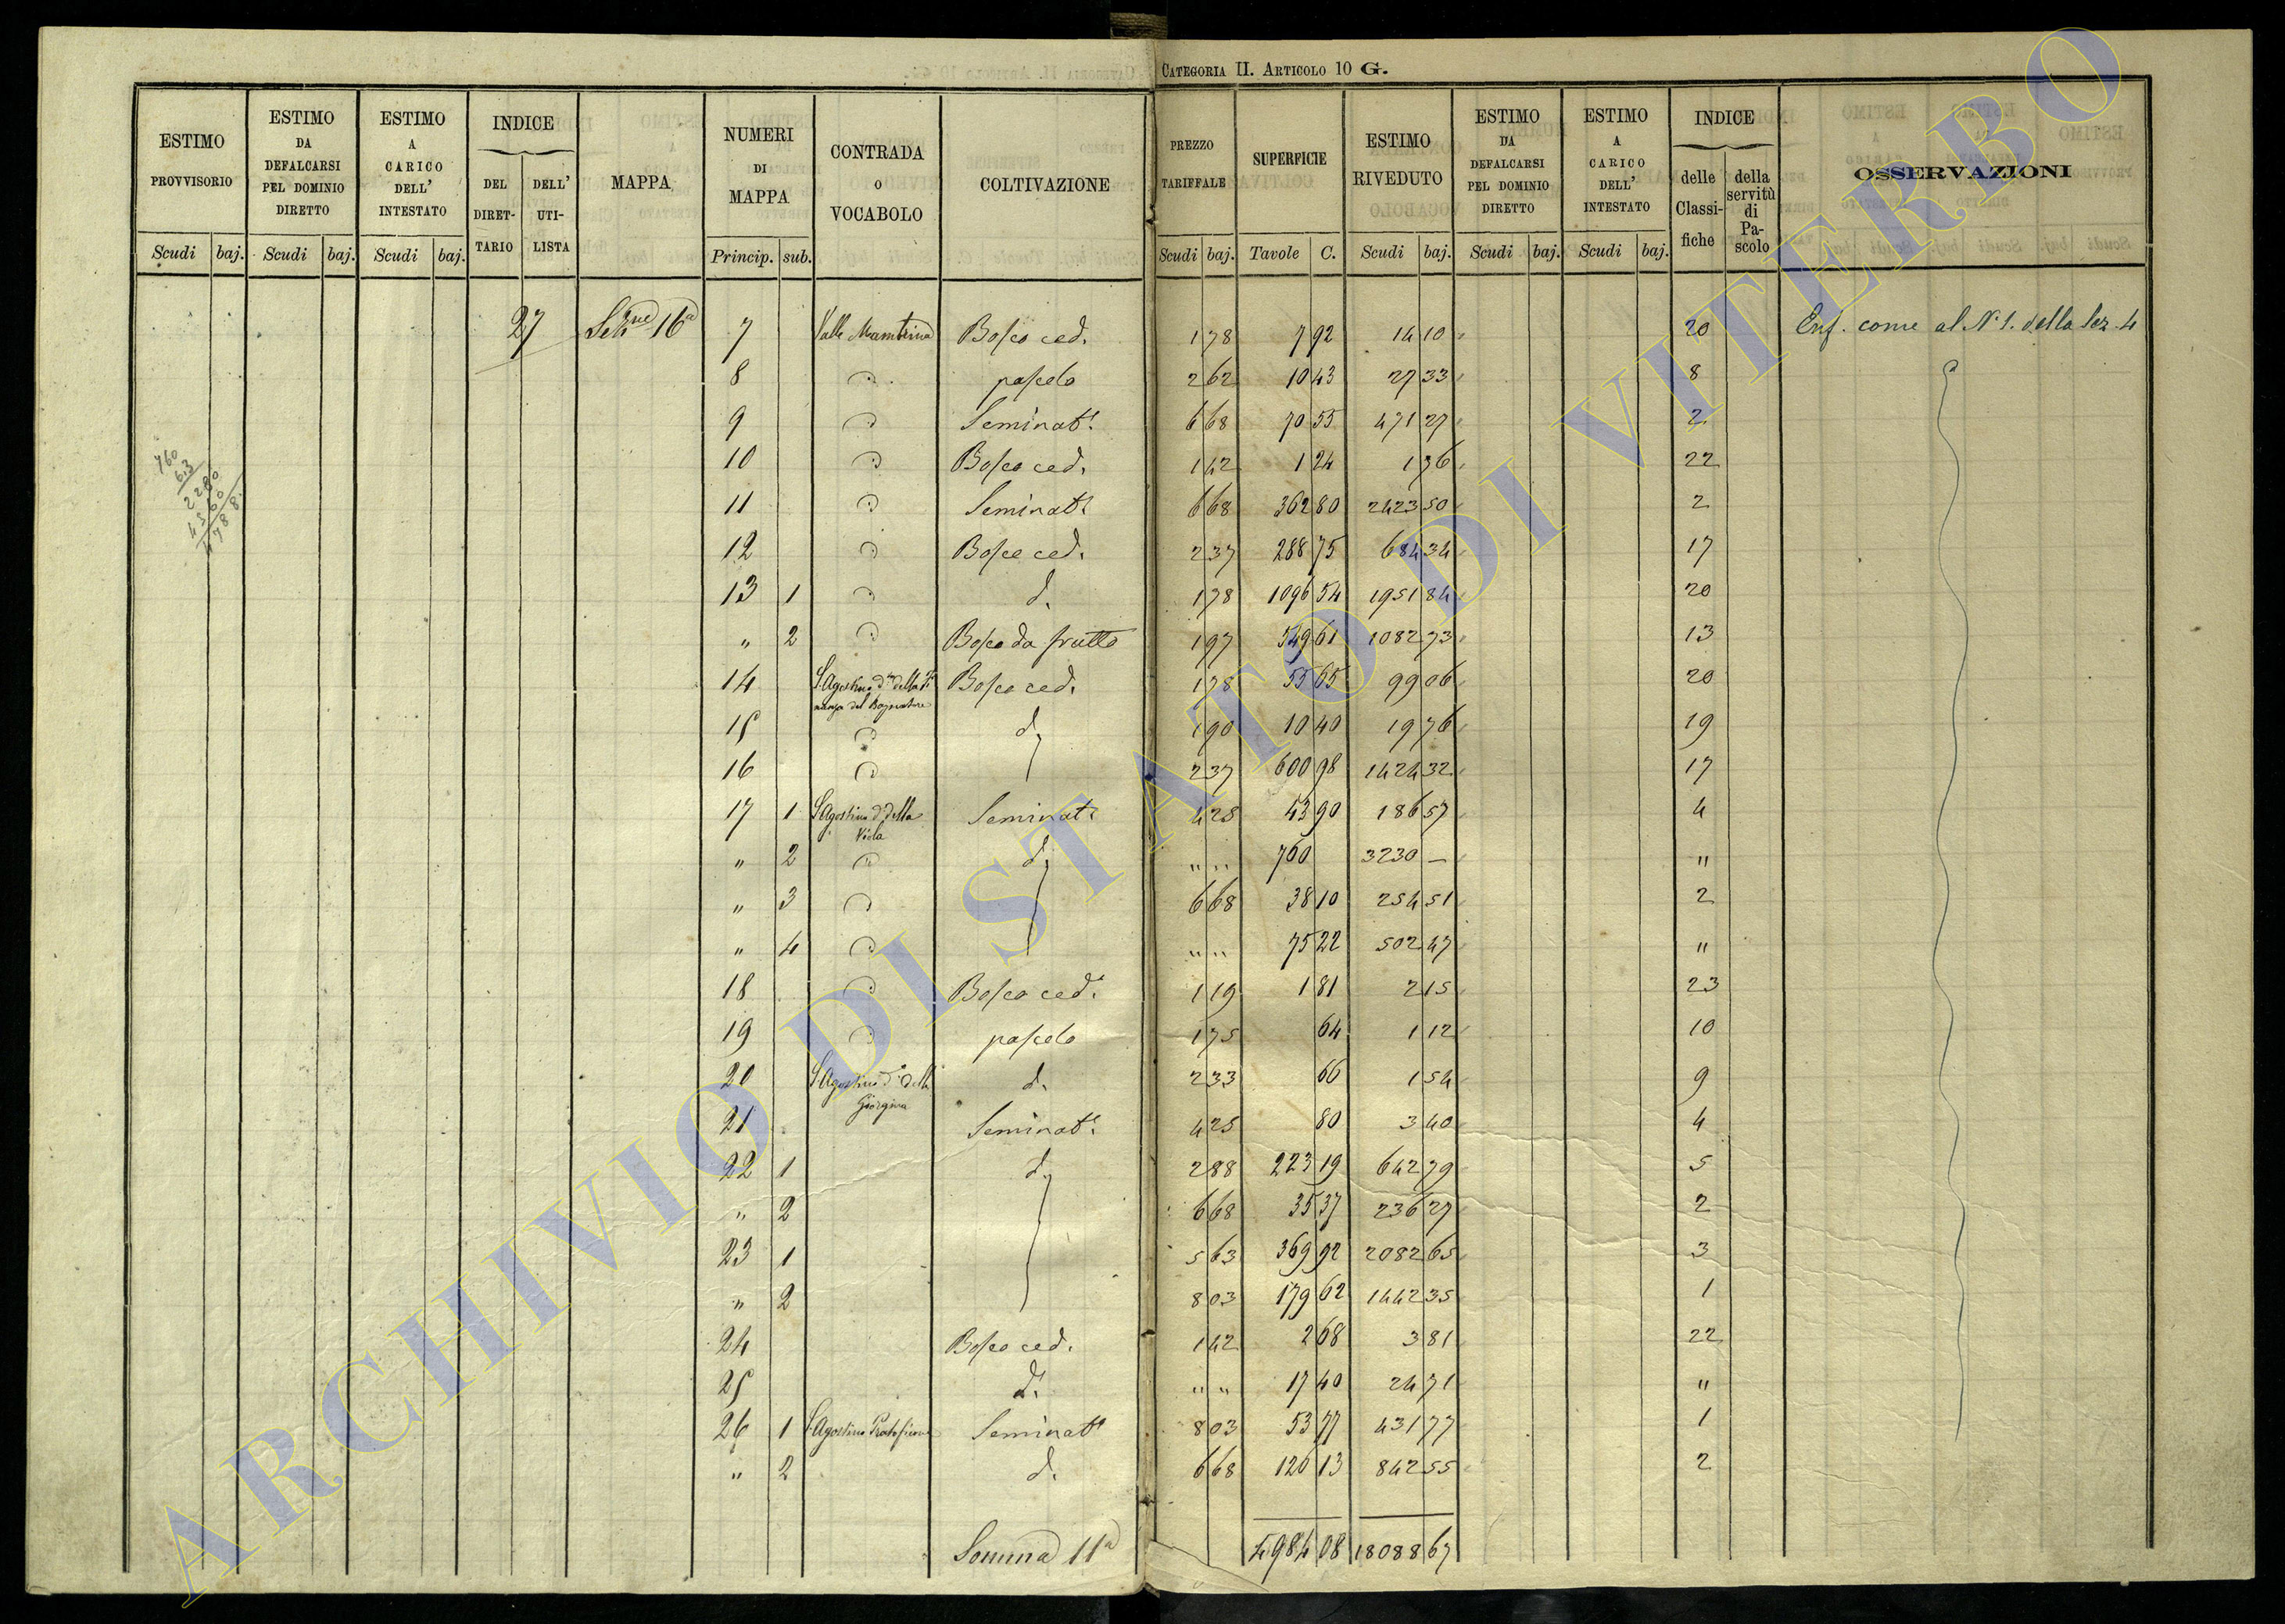 CATEGORIA II. ARTICOLO 10 G.
ESTIMO PROVVISORIO
ESTIMO DA DEFALCARSI PEL DOMINIO DIRETTO
ESTIMO A CARICO DELL' INTESTATO
INDICE
DEL DIRETTARIO
DELL' UTILISTA
MAPPA
NUMERI DI MAPPA
CONTRADA O VOCABOLO
COLTIVAZIONE
PREZZO TARIFFALE
SUPERFICIE
ESTIMO RIVEDUTO
ESTIMO DA DEFALCARSI PEL DOMINIO DIRETTO
ESTIMO A CARICO DELL' INTESTATO
INDICE
delle Classifiche
della servitù di Pascolo
OSSERVAZIONI
Scudi baj. Scudi baj. Scudi baj. Princip. sub. Scudi baj. Tavole C. Scudi baj. Scudi baj. Scudi baj.
27 Sez.ne 16a 7 Valle Mambrina Bosco ced. 1 78 7 92 14 10 20 Enf. come al N.1. della Sez. 4
8 " pascolo 2 62 10 43 27 33 8
9 " Seminat. 6 68 70 55 471 27 2
10 " Bosco ced. 1 42 1 24 1 76 22
11 " Seminat. 6 68 362 80 2423 50 2
12 " Bosco ced. 2 37 288 75 684 34 17
13 1 " d. 1 78 1096 54 1951 84 20
" 2 " Bosco da frutto 1 97 549 61 1082 73 13
14 S. Agostino Bosco ced. 1 78 55 65 99 06 20
15 " d. 1 90 10 40 19 76 19
16 " 2 37 600 98 1424 32 17
17 1 S. Agostino d. della Viola Seminat. 4 25 43 90 186 57 4
" 2 " d. " " 760 3230 — "
" 3 " 6 68 38 10 254 51 2
" 4 " " " 75 22 502 47 "
18 " Bosco ced. 1 19 1 81 2 15 23
19 " pascolo 1 75 64 1 12 10
20 S. Agostino Giorgina d. 2 33 66 1 54 9
21 Seminat. 4 25 80 3 40 4
22 1 d. 2 88 223 19 642 79 5
" 2 6 68 35 37 236 27 2
23 1 5 63 369 92 2082 65 3
" 2 8 03 179 62 1442 35 1
24 Bosco ced. 1 42 2 68 3 81 22
25 d. " " 17 40 24 71 "
26 1 S. Agostino Seminat. 8 03 53 77 431 77 1
" 2 d. 6 68 126 13 842 55 2
Somma 11a 4984 08 18088 67
760
613
2280
4560
4788
ARCHIVIO DI STATO DI VITERBO